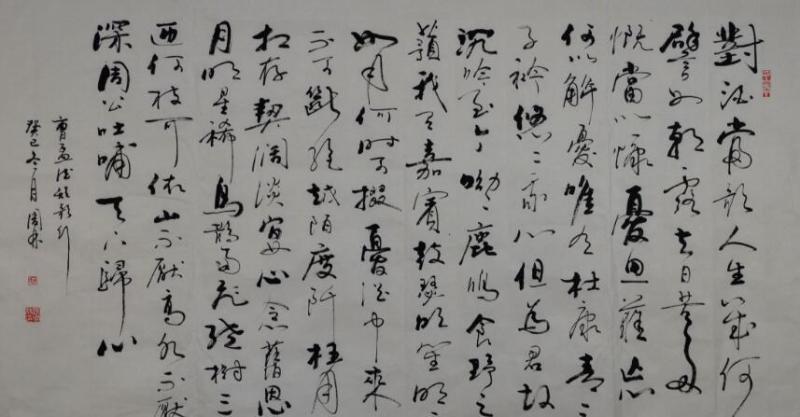 對酒當歌人生幾何
譬如朝露去日苦多
慨當以慷憂思難忘
何以解憂唯有杜康青〻
子衿悠〻我心但為君故
沉吟至今呦〻鹿鳴食野之
蘋我有嘉賓鼓瑟吹笙明〻
如月何時可掇憂從中來
不可斷絕越陌度阡枉用
相存契闊談宴心念舊恩
月明星稀烏鵲南飛繞樹三
匝何枝可依山不厭高水不厭
深周公吐哺天下歸心
曹孟德短歌行
癸巳冬月周